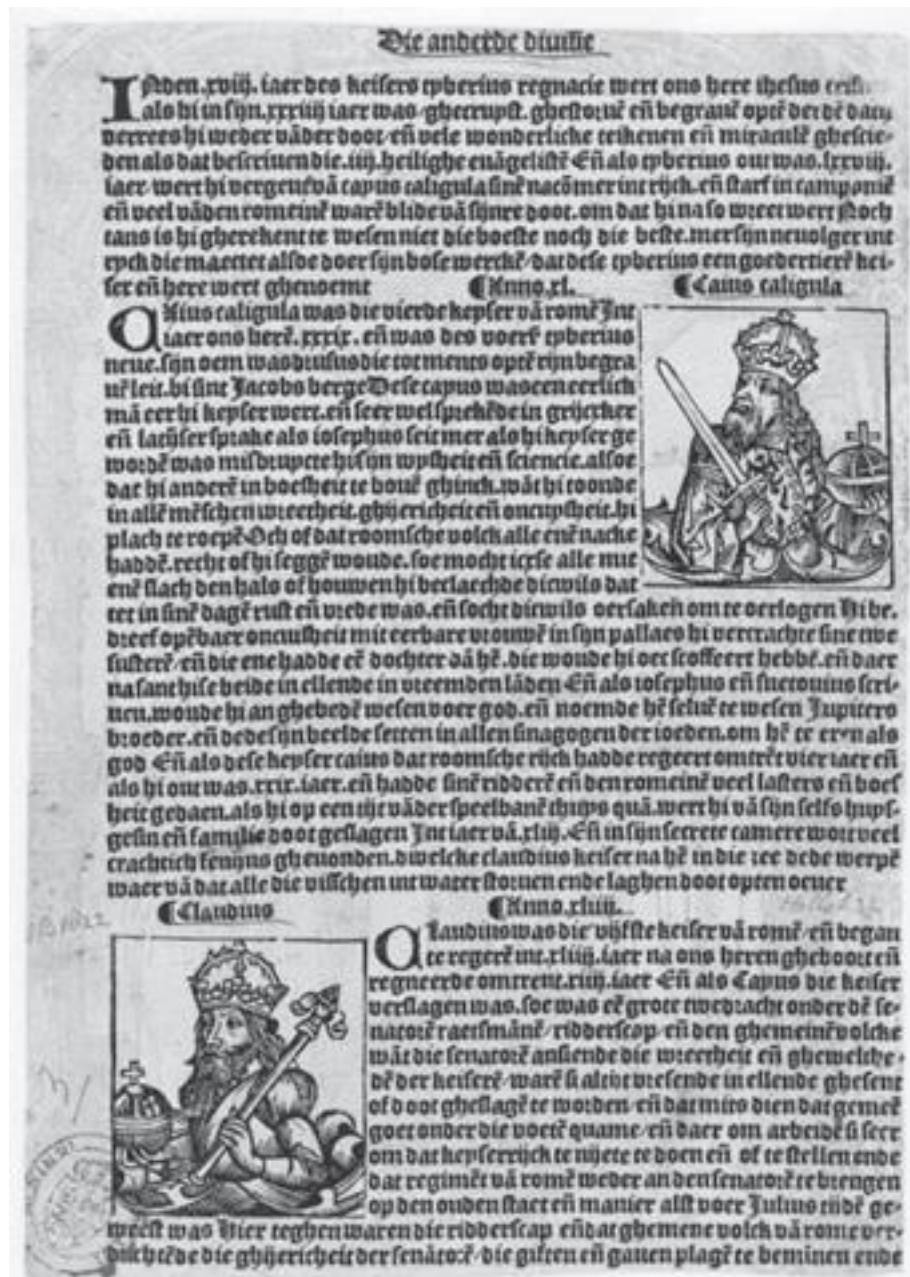 Die anderde diuisie
INden .xviij. iaer des keisers tyberius regnacie wert ons here ihesus
als hi in sijn .xxxiiij iaer was / ghecruyst. ghestoruē eñ begrauē optē derdē dach
verrees hi weder vāder doot / eñ vele wonderlicke teikenen eñ miraculē ghescie-
den als dat bescriuen die .iiij. heilighe euāgelistē Eñ als tyberius out was .lxxviij.
iaer / wert hi vergeuē vā cayus caligula sinē nacōmer int rijck. eñ starf in
eñ veel vāden romeinē warē blide vā sijnre doot. om dat hi na so wreet wert Noch
tans is hi gherekent te wesen niet die boeste noch die beste. mer sijn neuolger int
ryck die maectet alsde doer sijn bose werckē / dat dese tyberius een goedertierē kei-
ser eñ here wert ghenoemt ¶Anno .xl. ¶Caius caligula
CAius caligula was die vierde keyser vā romē Int
iaer ons herē .xxxix. eñ was des voers tyberius
neue. sijn oem was drusus die tot ments optē rijn begra
uē leit. bi sint Jacobs berge Dese cayus was een eerlick
mā eer hi keyser wert. eñ seer wel sprekēde in griecker
eñ latijser sprake als iosephus seit mer als hi keyser ge
wordē was misbruycte hi sijn wysheit eñ sciencie. alsoe
dat hi anderē in boesheit te bouē ghinck. wāt hi toonde
in allē mēschen wreetheit. ghijericheit eñ oncuysheit. hi
plach te roepē Och of dat roomsche volck alle enē nacke
haddē. recht of hi seggē woude. soe mocht icxse alle mit
enē slach den hals of houwen hi beclaechde dicwils dat
tet in sinē dagē rust eñ vrede was. eñ socht dicwils oersakeñ om te oerlogen Hi be-
dreef opēbaer oncuisheit mit eerbare vrouwē in sijn pallaes hi vercrachte sine twe
susterē / eñ die ene hadde eē dochter vā hē. die woude hi oec scoffeert hebbē. eñ daer
na sant hise beide in ellende in vreemden lāden Eñ als iosephus eñ suetonius scri-
uen. woude hi an ghebedē wesen voer god. eñ noemde hē seluē te wesen Jupiters
broeder. eñ dede sijn beelde setten in allen sinagogen der ioeden. om hē te eren als
god Eñ als dese keyser caius dat roomsche rijck hadde regeert omtrēt vier iaer eñ
als hi out was .xxix. iaer. eñ hadde sinē ridderē eñ den romeinē veel lasters eñ boes
heit gedaen. als hi op een tijt vāder speelbanē thuys quā. wert hi vā sijn selfs huys-
gesin eñ familie doot geslagen Int iaer vā .xliij. Eñ in sijn secrete camere wort veel
crachtich fenijns gheuonden. diwelcke claudius keiser na hē in die zee dede werpē
waer vā dat alle die visschen int water storuen ende laghen doot opten oeuer
¶Claudius ¶Anno .xliiij.
CLaudius was die vijfste keiser vā romē / eñ began
te regerē int .xliiij. iaer na ons heren gheboort eñ
regneerde omtrent .xiiij. iaer Eñ als Cayus die keiser
verslagen was. soe was eē grote twedracht onder dē se-
natorē raetsmānē / ridderscap / eñ den ghemeinē volcke
wāt die senatorē ansiende die wreetheit eñ ghewelche-
dē der keiserē / warē si altijt vresende in ellende ghesent
of doot gheslagē te worden / eñ dat mits dien dat gemeē
goet onder die voetē quame / eñ daer om arbeidē si seer
om dat keyserrijck te nijete te doen eñ of te stellen ende
dat regimēt vā romē weder an den senatorē te brengen
op den ouden staet eñ manier alst voer Julius tijdē ge-
weest was Hier teghen waren die ridderscap eñ dat ghemene volck vā rome ver-
duchtēde die ghijericheit der senatorē / die giften eñ gauen plagē te beminen ende